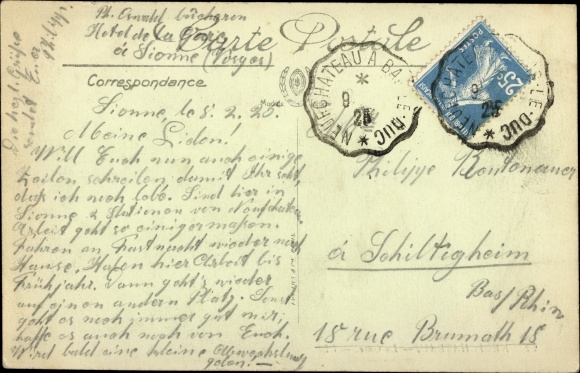 Ph. Oswald
Hotel de la Gare
á Sionne (Vosges)
Carte Postale
Correspondance
Sionne, le 8. 2. 26.
Meine Lieben!
Will Euch nun auch einige
Zeilen schreiben damit Ihr seht,
daß ich noch lebe. Sind hier in
Sionne 2 Stationen von
Arbeit geht so einigermaßen.
Fahren an Fastnacht wieder nach
Hause. Haben hier Arbeit bis
Frühjahr. Dann geht's wieder
auf einen andern Platz. Sonst
geht es noch immer gut mir,
hoffe es auch noch von Euch.
Wird bald eine kleine Abwechslung
geben. —
NEUFCHATEAU A BAR-LE-DUC
9
2
NEUFCHATEAU A BAR-LE-DUC
9
2
25c
POSTES
Philippe
á Schiltigheim
Bas/Rhin
15 rue Brumath 15